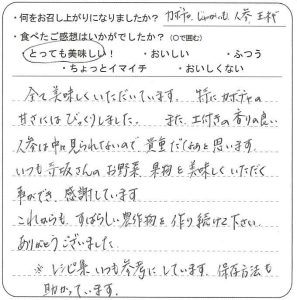 ・何をお召し上がりになりましたか? カボチャ じゃがいも 人参 玉ねぎ
・食べたご感想はいかがでしたか?(○で囲む)
・とっても美味しい! ・おいしい ・ふつう
・ちょっとイマイチ ・おいしくない
全て美味しくいただいています。特にカボチャの
甘さにはびっくりしました。 また、土付きの香りの良い
人参は中々見られないので、貴重だなぁと思います。
いつも さんのお野菜、果物を美味しくいただく
事ができ、感謝しています。
これからも、すばらしい農作物を作り続けて下さい。
ありがとうございました。
※レシピ集、いつも参考にしています。保存方法も
助かっています。